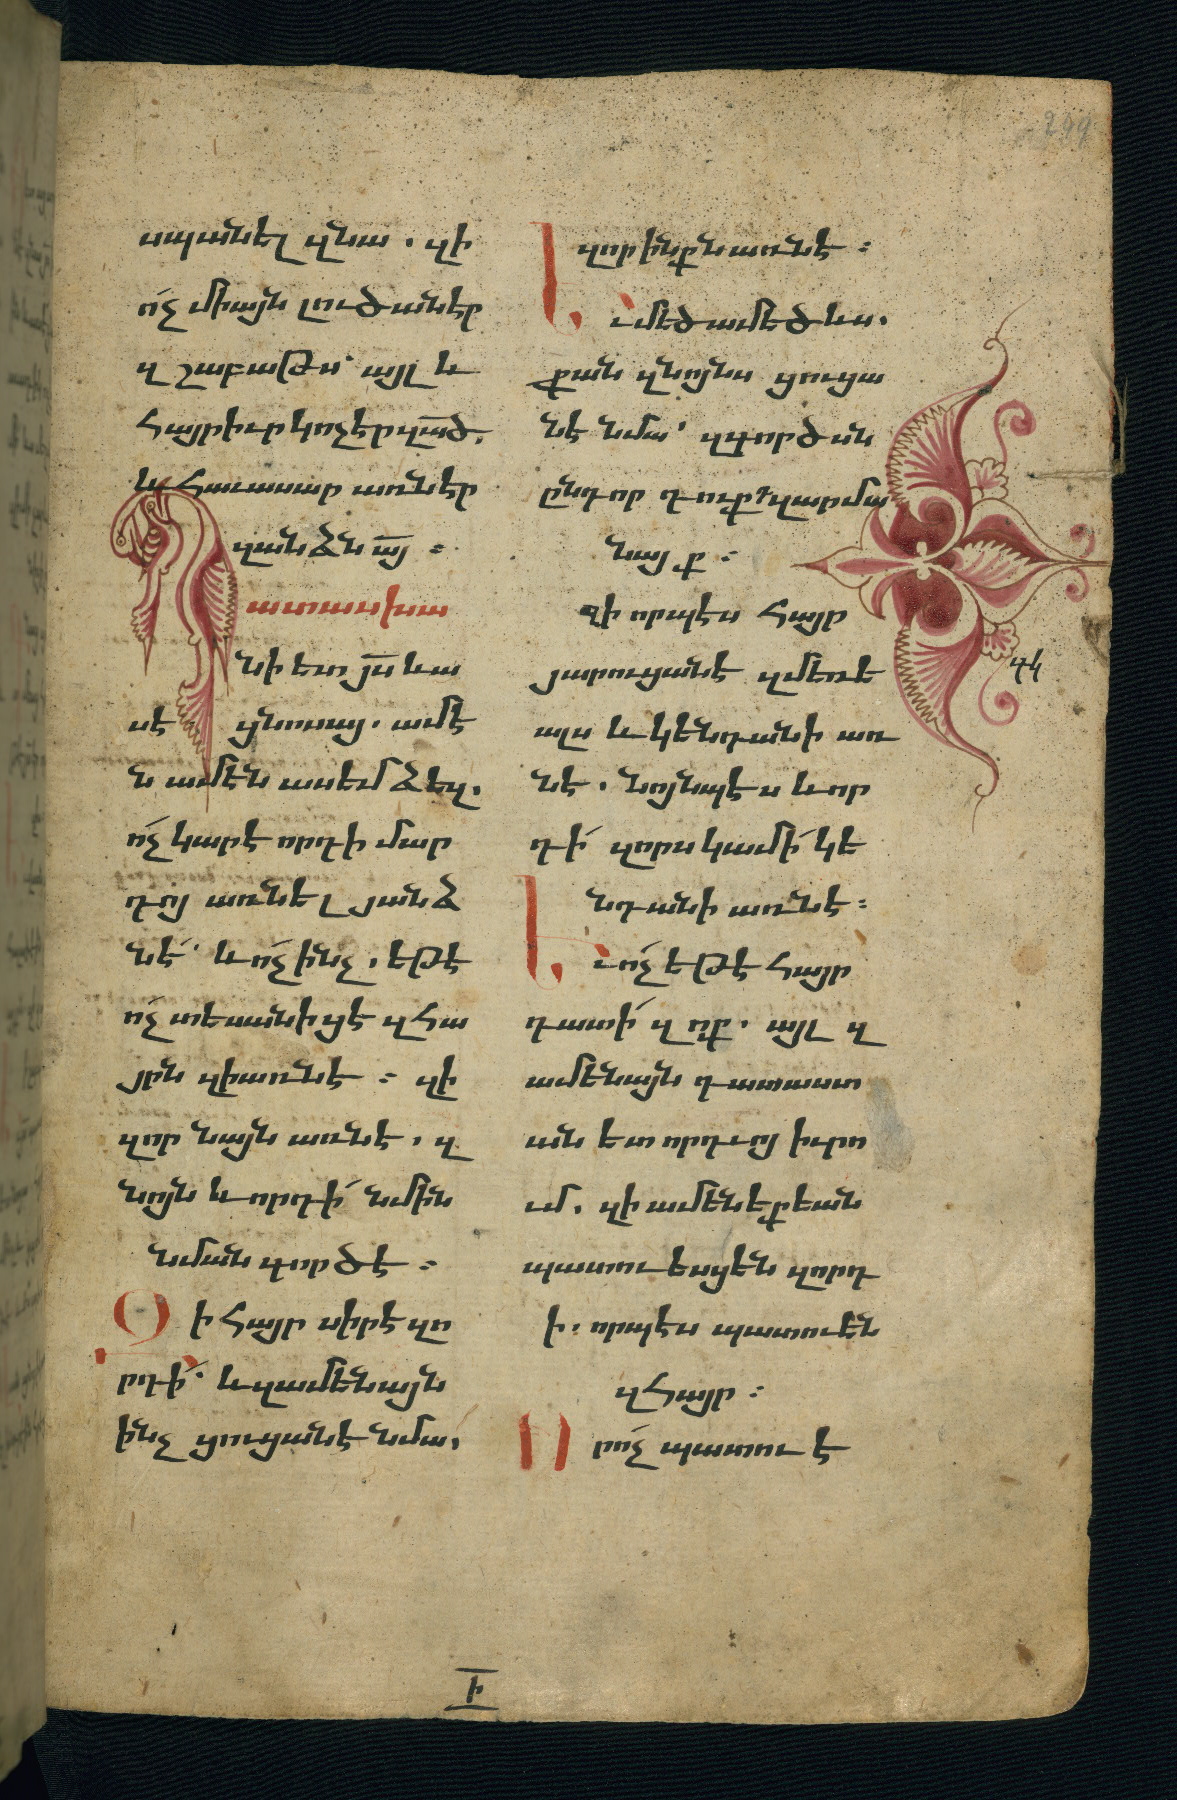 սպանել զնա . զի
ոչ միայն լուծանէր
զ շաբաթս՝ այլ և
հայր իւր կոչէր զա̅ծ,
և հաւասար առնէր
զանձն ա̅յ ։
ատասխա
նի ետ յ̅ս և ա
սէ ցնոսայ . ամէ
ն ամէն ասեմ ձեզ.
ոչ կարէ որդի մար
դոյ առնել յանձ
նէ՝ և ոչ ինչ , եթէ
ոչ տեսանիցէ զհա
յրն զի առնէ ։ զի
զոր նայն առնէ , զ
նոյն և որդի նմին
նման գործէ ։
Զի հայր սիրէ զո
րդի՝ և զամենայն
ինչ ցուցանէ նմա,
զոր ինքն առնէ ։
Եւ մեծամեծ ևս.
քան զնոյնս ցուցա
նէ նմա՝ զգործ ան
ընդ որ դուքդ զարմա
նայք ։
Զի որպէս հայր
յարուցանէ զմեռե
ալս և կենդանի առ
նէ . նոյնպէս և որ
դի զորս կամի կե
նդանի առնէ ։
Եւ ոչ եթէ հայր
դատի զոք . այլ զ
ամենայն դատաստ
ան ետ որդւոյ իւրո
ւմ. զի ամենեքեան
պատուեսցեն զորդ
ի . որպէս պատուեն
զհայր ։
Որ ոչ պատուէ
գկ
299
Ի